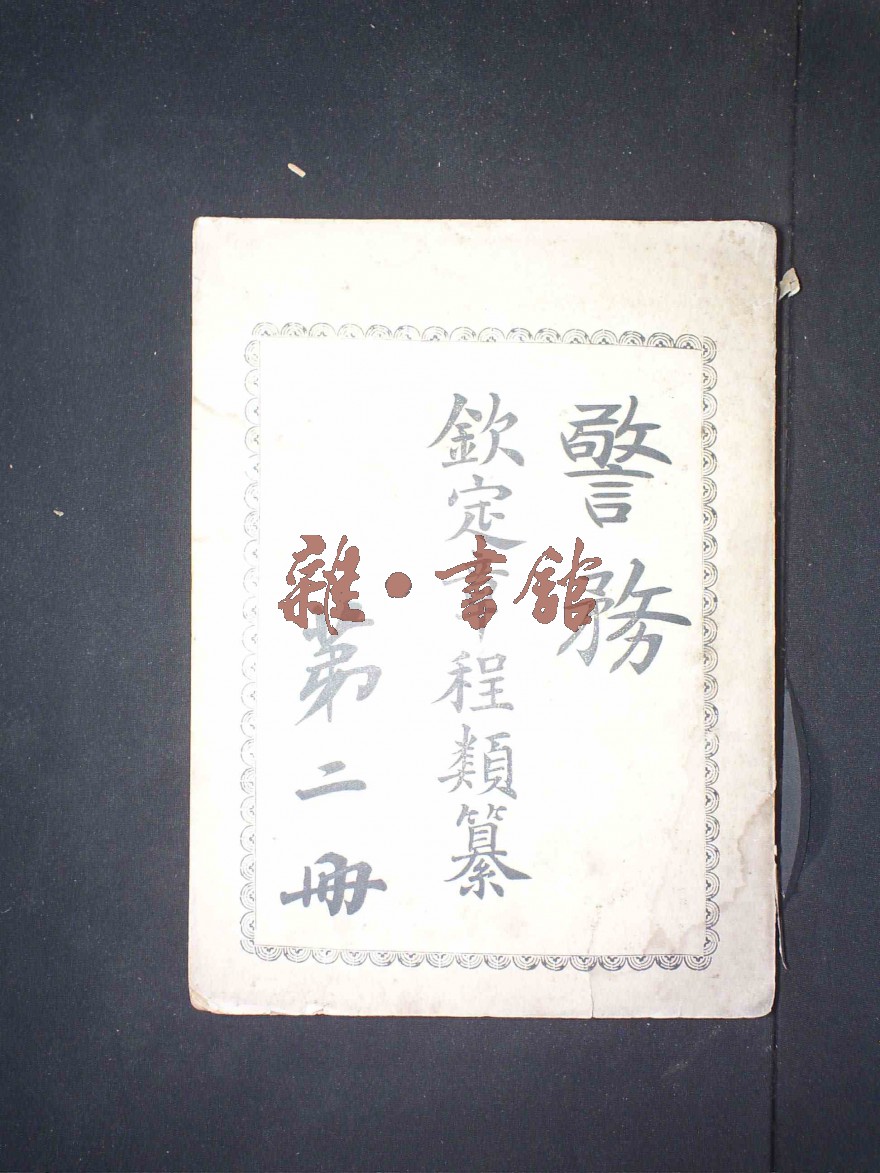 警務
欽定章程類纂
第二冊
雜·書館